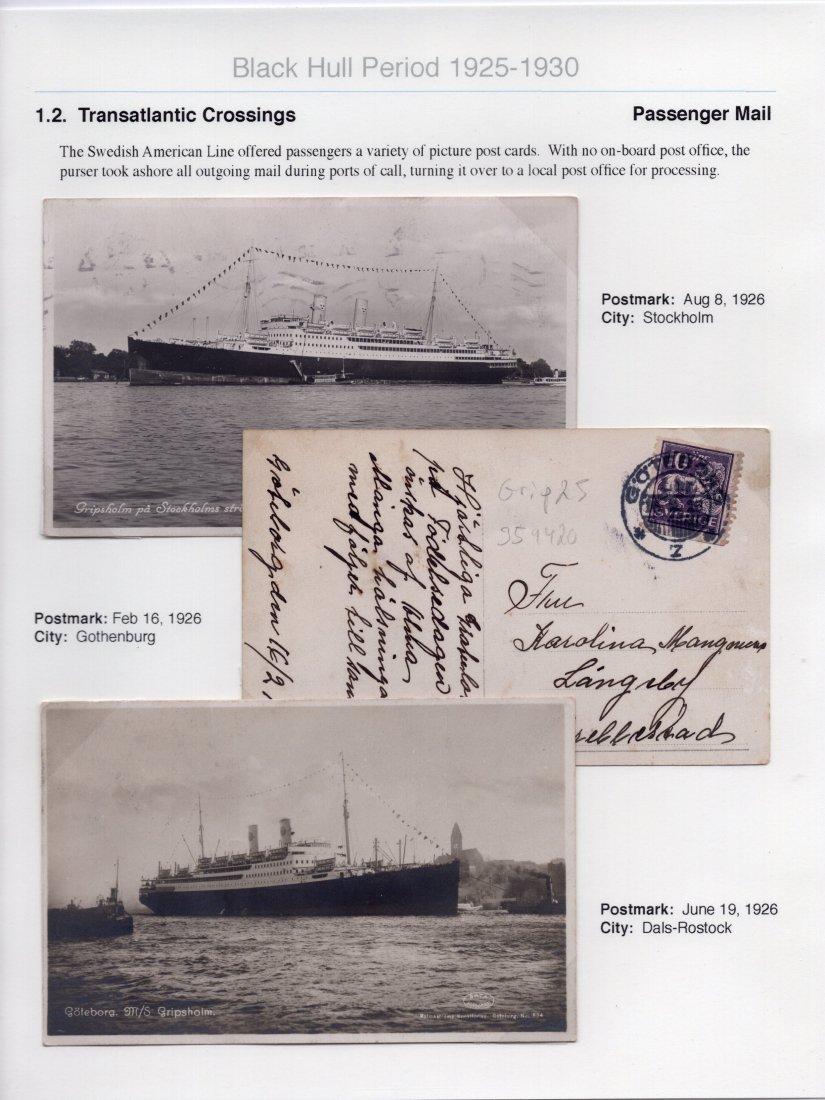 Black Hull Period 1925-1930
1.2. Transatlantic Crossings
Passenger Mail
The Swedish American Line offered passengers a variety of picture post cards. With no on-board post office, the
purser took ashore all outgoing mail during ports of call, turning it over to a local post office for processing.
Postmark: Aug 8, 1926
City: Stockholm
Gripsholm på Stockholms strö
Postmark: Feb 16, 1926
City: Gothenburg
Göteborg den 16/2
Hjärtliga
på Födelsedagen
önskas af Alma
Många hälsninga
medföljer till
Grip 25
951420
GÖTEBORG
7
10
Fru
Karolina
Långeby
Göteborg. M/S Gripsholm.
Postmark: June 19, 1926
City: Dals-Rostock